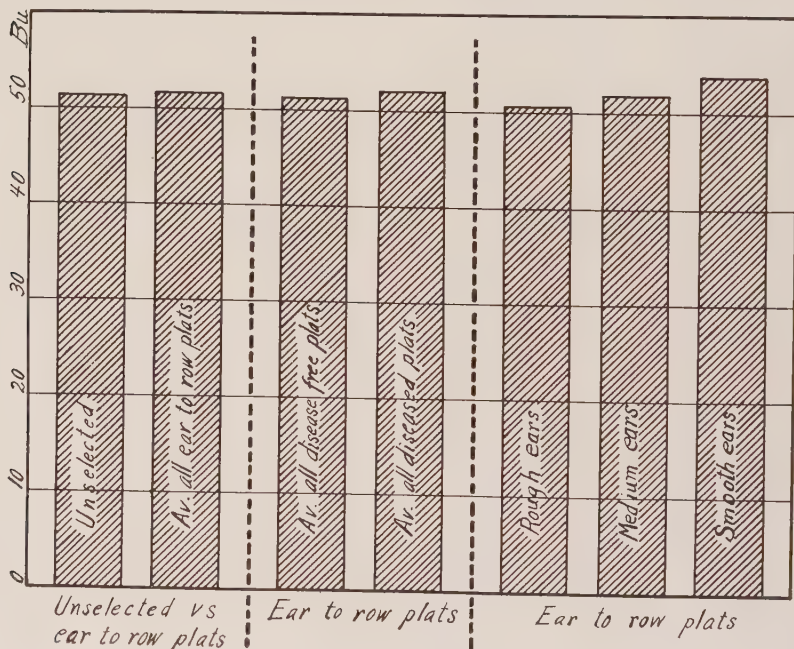 Bu
50
40
30
20
10
0
Unselected
Av. all ear to row plats
Av. all disease free plats
Av. all diseased plats
Rough ears
Medium ears
Smooth ears
Unselected vs
ear to row plats
Ear to row plats
Ear to row plats